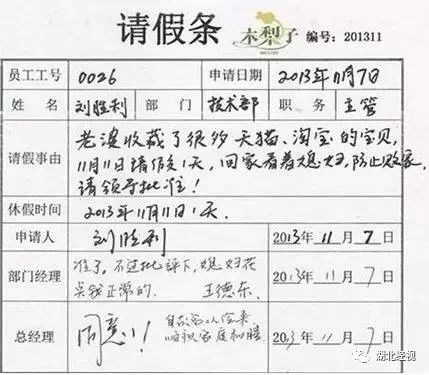 请假条 木梨子 编号:201311
员工工号 0026 申请日期 2013年11月7日
姓名 刘胜利 部门 技术部 职务 主管
请假事由
老婆收藏了很多天猫、淘宝的宝贝,
11月11日请假1天,回家看着媳妇,防止败家.
请领导批准!
休假时间 2013年11月11日1天.
申请人 刘胜利 2013年11月7日
部门经理
准了,不过批评下,媳妇花
点钱正常的. 王德东 2013年11月7日
总经理 同意!! 自古客从
家庭和睦 2013年11月7日
湖北经视